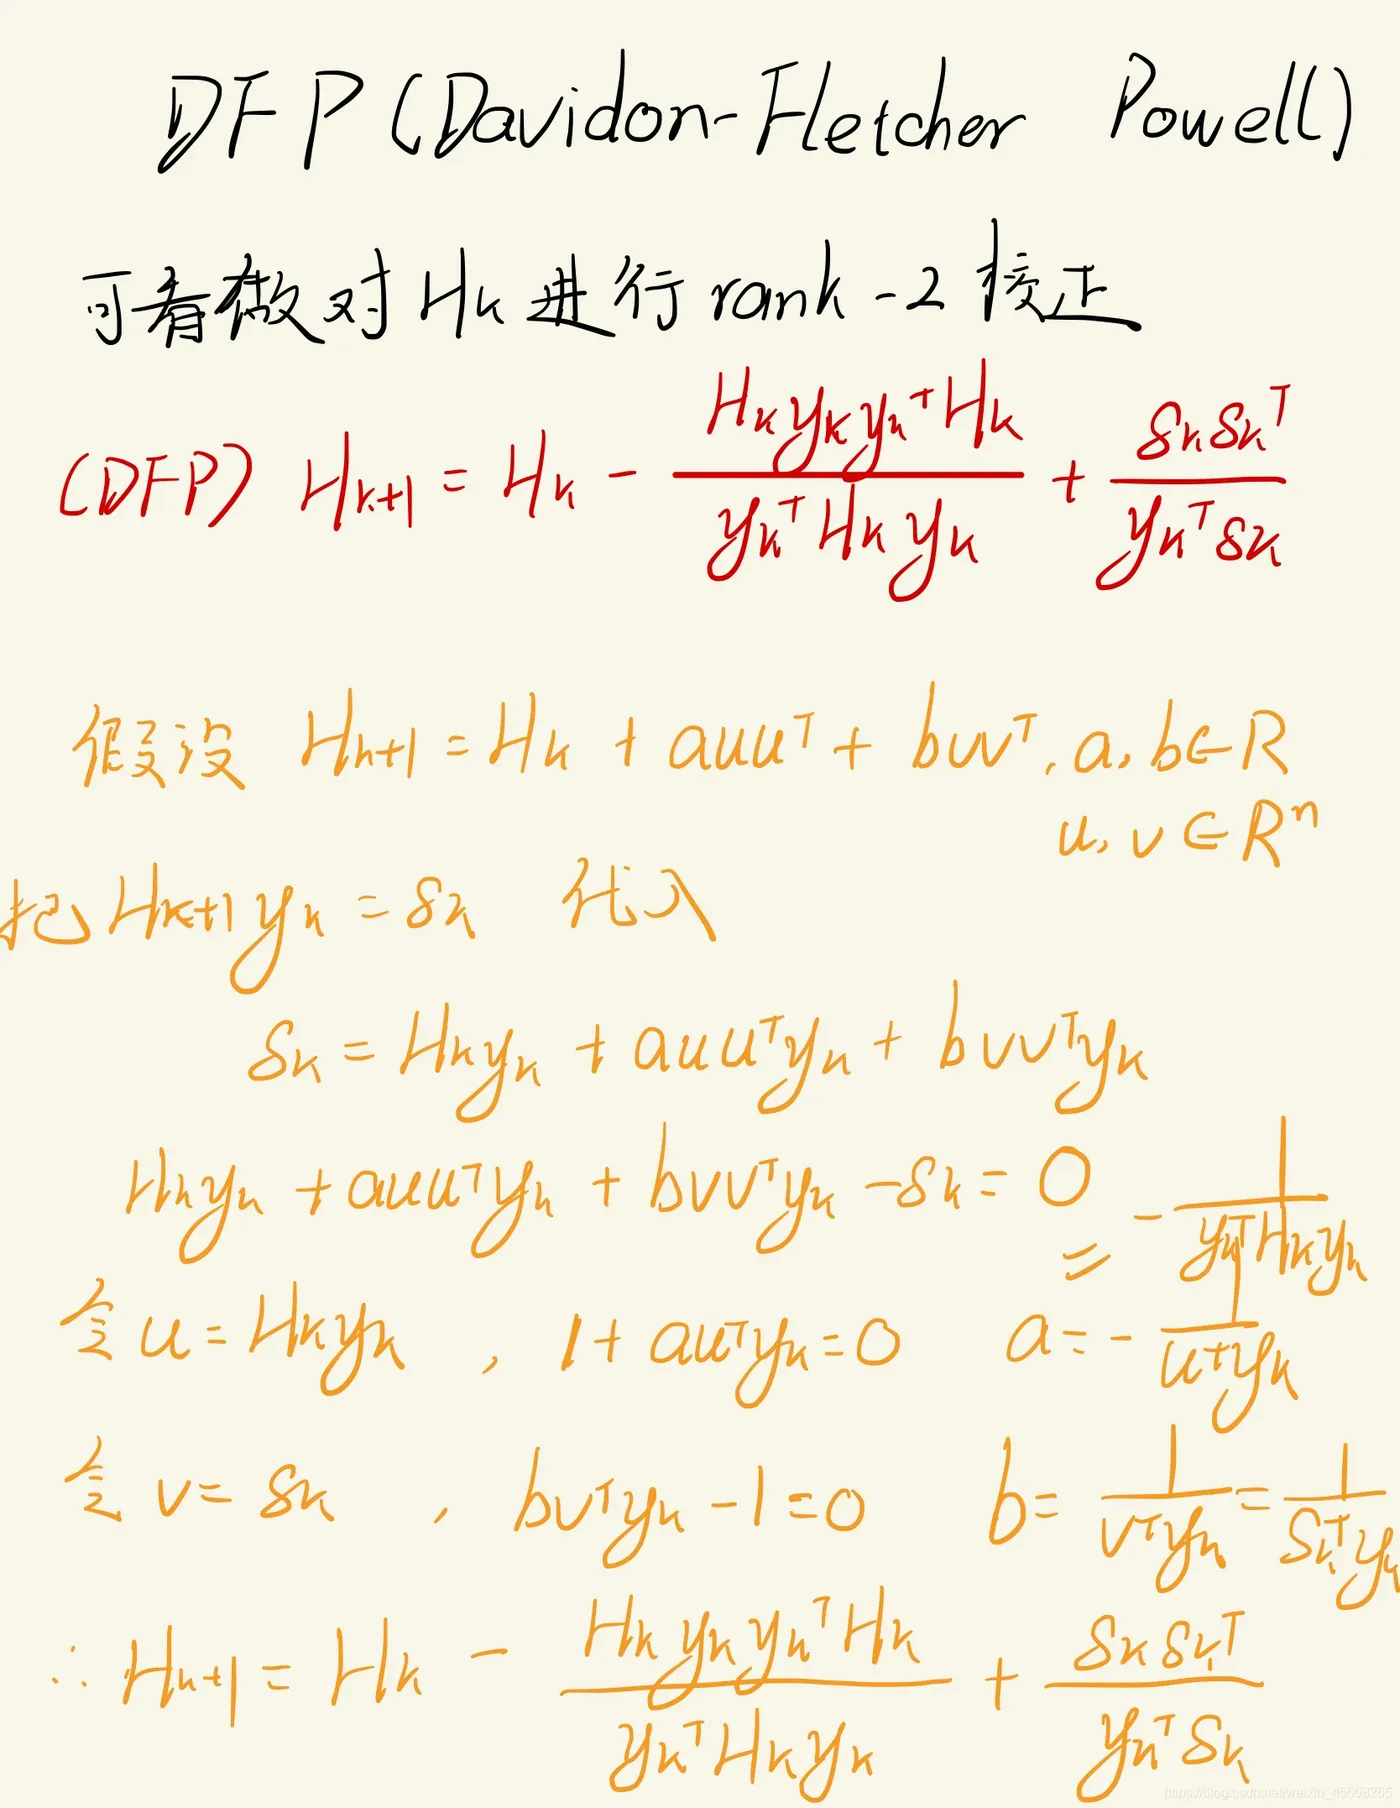 DFP (Davidon-Fletcher Powell)
可看做对 Hₖ 进行 rank-2 校正
(DFP) Hₖ₊₁ = Hₖ - (HₖyₖyₖᵀHₖ)/(yₖᵀHₖyₖ) + (sₖsₖᵀ)/(yₖᵀsₖ)
假设 Hₖ₊₁ = Hₖ + auuᵀ + bvvᵀ, a, b ∈ R
u, v ∈ Rⁿ
把 Hₖ₊₁yₖ = sₖ 代入
sₖ = Hₖyₖ + auuᵀyₖ + bvvᵀyₖ
Hₖyₖ + auuᵀyₖ + bvvᵀyₖ - sₖ = 0
= - 1/(yₖᵀHₖyₖ)
令 u = Hₖyₖ , 1 + auᵀyₖ = 0 a = - 1/(uᵀyₖ)
令 v = sₖ , bvᵀyₖ - 1 = 0 b = 1/(vᵀyₖ) = 1/(sₖᵀyₖ)
∴ Hₖ₊₁ = Hₖ - (HₖyₖyₖᵀHₖ)/(yₖᵀHₖyₖ) + (sₖsₖᵀ)/(yₖᵀsₖ)
https://blog.csdn.net/weixin_45508265